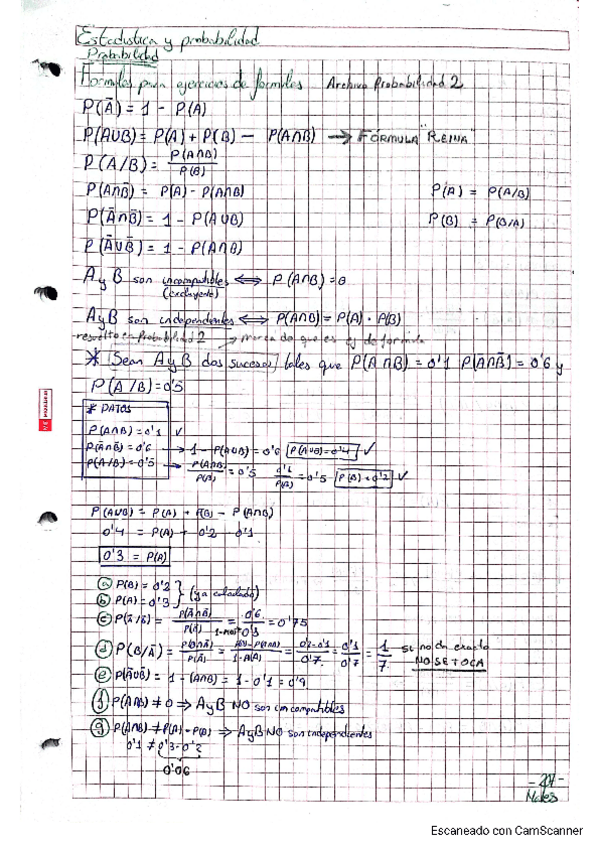 Estadística y probabilidad
Probabilidad
Fórmulas para ejercicios de formules Archivo Probabilidad 2
P(Ā) = 1 - P(A)
P(A∪B) = P(A) + P(B) - P(A∩B) → FÓRMULA "REINA"
P(A/B) = P(A∩B) / P(B)
P(A∩B̄) = P(A) - P(A∩B) P(A) = P(A/B)
P(Ā∩B̄) = 1 - P(A∪B) P(B) = P(B/A)
P(Ā∪B̄) = 1 - P(A∩B)
A y B son incompatibles ⟺ P(A∩B) = 0
(excluyente)
A y B son independientes ⟺ P(A∩B) = P(A) · P(B)
resuelto en Probabilidad 2 → marca de que es ej de formula
* Sean A y B dos sucesos tales que P(A∩B) = 0'1 P(Ā∩B̄) = 0'6 y
P(A/B) = 0'5
* DATOS
P(A∩B) = 0'1 ✓
P(Ā∩B̄) = 0'6 → 1 - P(A∪B) = 0'6 P(A∪B) = 0'4 ✓
P(A/B) = 0'5 → P(A∩B) / P(B) = 0'5 0'1 / P(B) = 0'5 P(B) = 0'2 ✓
P(A∪B) = P(A) + P(B) - P(A∩B)
0'4 = P(A) + 0'2 - 0'1
0'3 = P(A)
a P(B) = 0'2
b P(A) = 0'3 } (ya calculado)
c P(Ā/B̄) = P(Ā∩B̄) / P(B̄) = 0'6 = 0'75
d P(B/Ā) = P(B∩Ā) / P(Ā) = P(B) - P(A∩B) / 1 - P(A) = 0'2 - 0'1 / 0'7 = 0'1 / 0'7 = 1 / 7 si no da exacto
NO SE TOCA
e P(Ā∪B̄) = 1 - (A∩B) = 1 - 0'1 = 0'9
f P(A∩B) ≠ 0 ⇒ A y B NO son incompatibles
g P(A∩B) ≠ P(A) · P(B) ⇒ A y B NO son independientes
0'1 ≠ 0'3 · 0'2
0'06
Escaneado con CamScanner